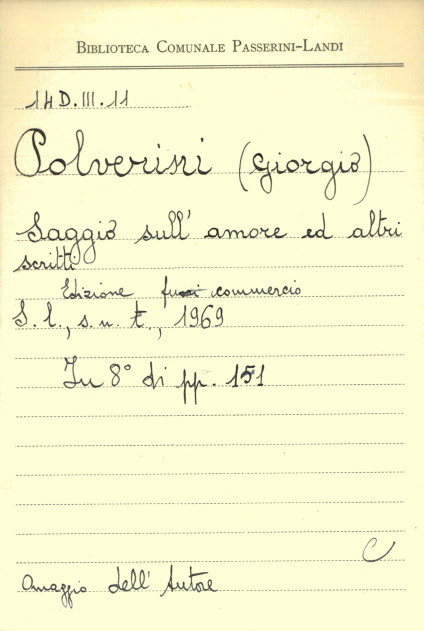 Biblioteca Comunale Passerini-Landi
14D.III.11
Polverini (Giorgio)
Saggio sull' amore ed altri
scritti
Edizione fuori commercio
S. l., s. n. t., 1969
In 8° di pp. 151
C
Omaggio dell' Autore